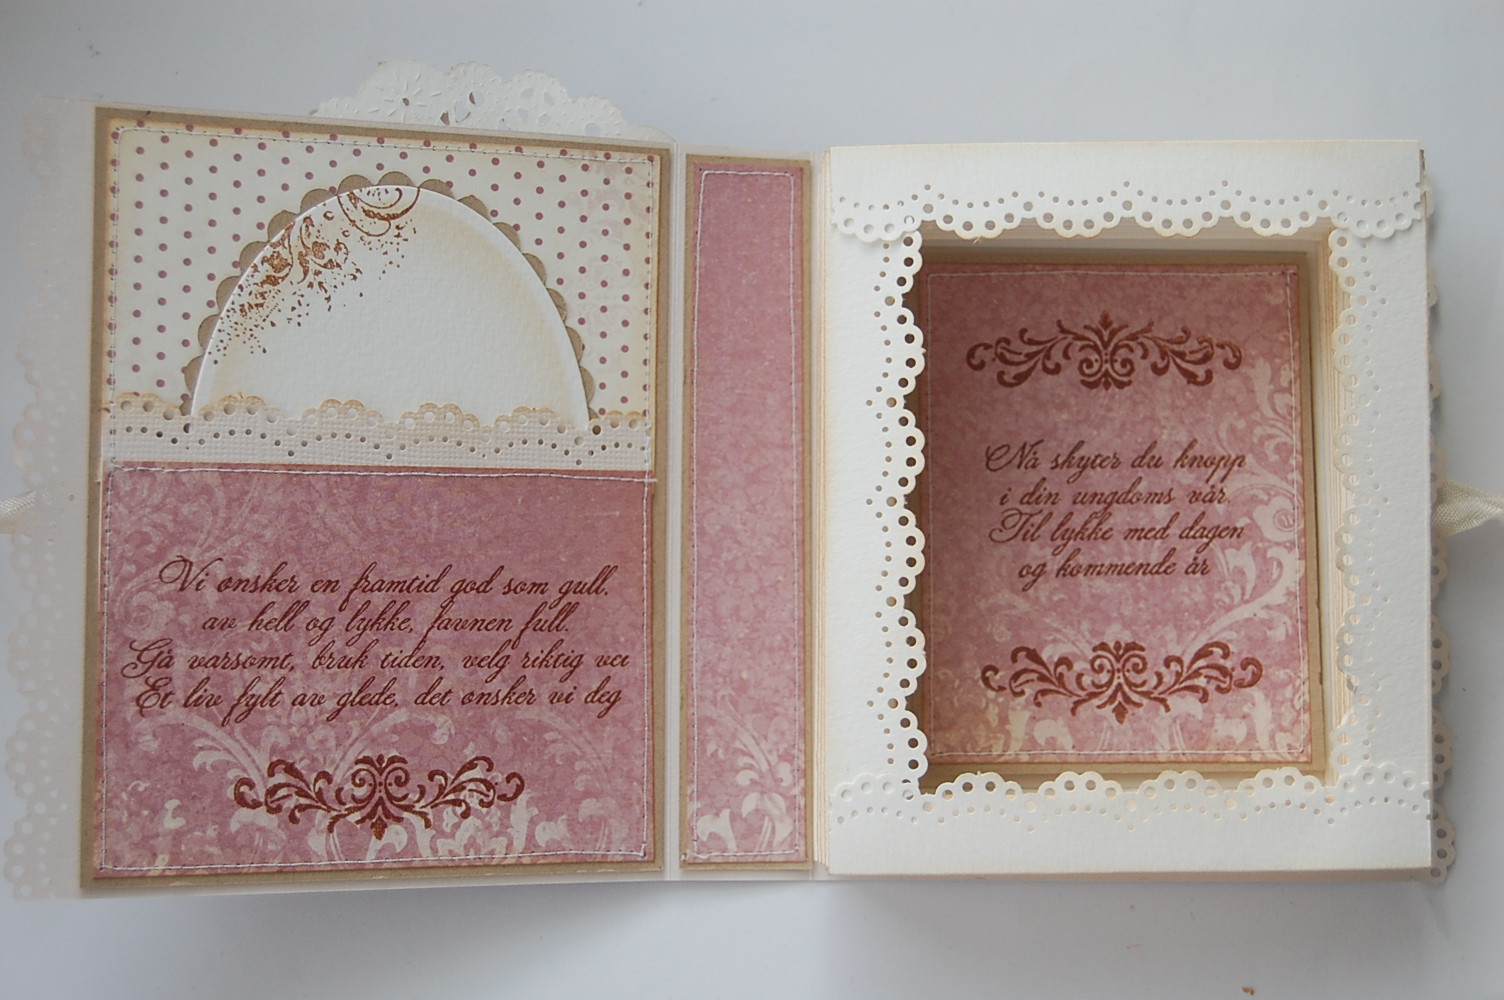 Vi ønsker en framtid god som gull,
av hell og lykke, favnen full.
Gå varsomt, bruk tiden, velg riktig vei
Et liv fylt av glede, det ønsker vi deg
Nå skyter du knopp
i din ungdoms vår.
Til lykke med dagen
og kommende år